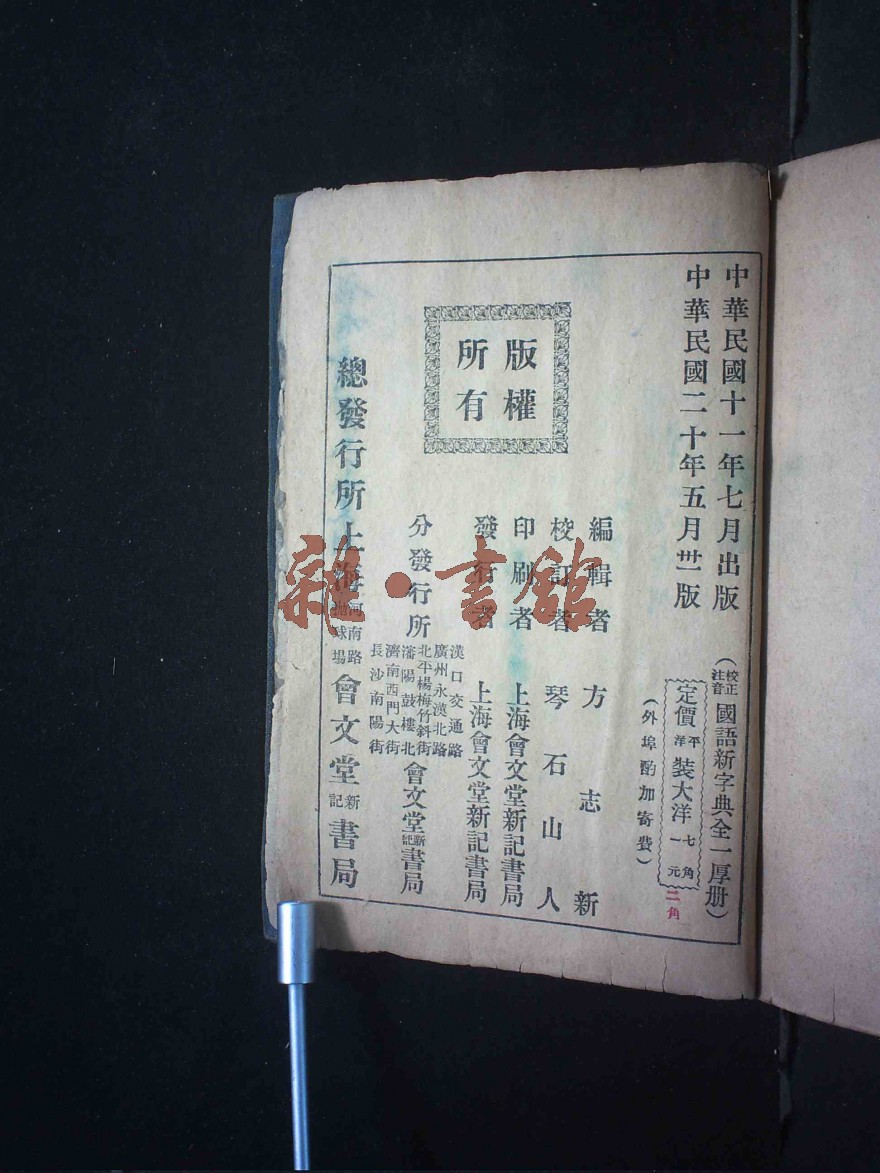 中華民國十一年七月出版
中華民國二十年五月卅一版
(校正注音國語新字典全一厚册)
定價平裝大洋七角
洋裝大洋一元二角
(外埠酌加寄費)
編輯者 方志新
校訂者 琴石山人
印刷者 上海會文堂新記書局
發行者 上海會文堂新記書局
版權所有
分發行所
漢口交通路
廣州永漢北路
北平楊梅竹斜街
瀋陽鼓樓北
濟南西門大街
長沙南陽街
會文堂新記書局
總發行所上海河南路拋球場會文堂新記書局
雜·書館